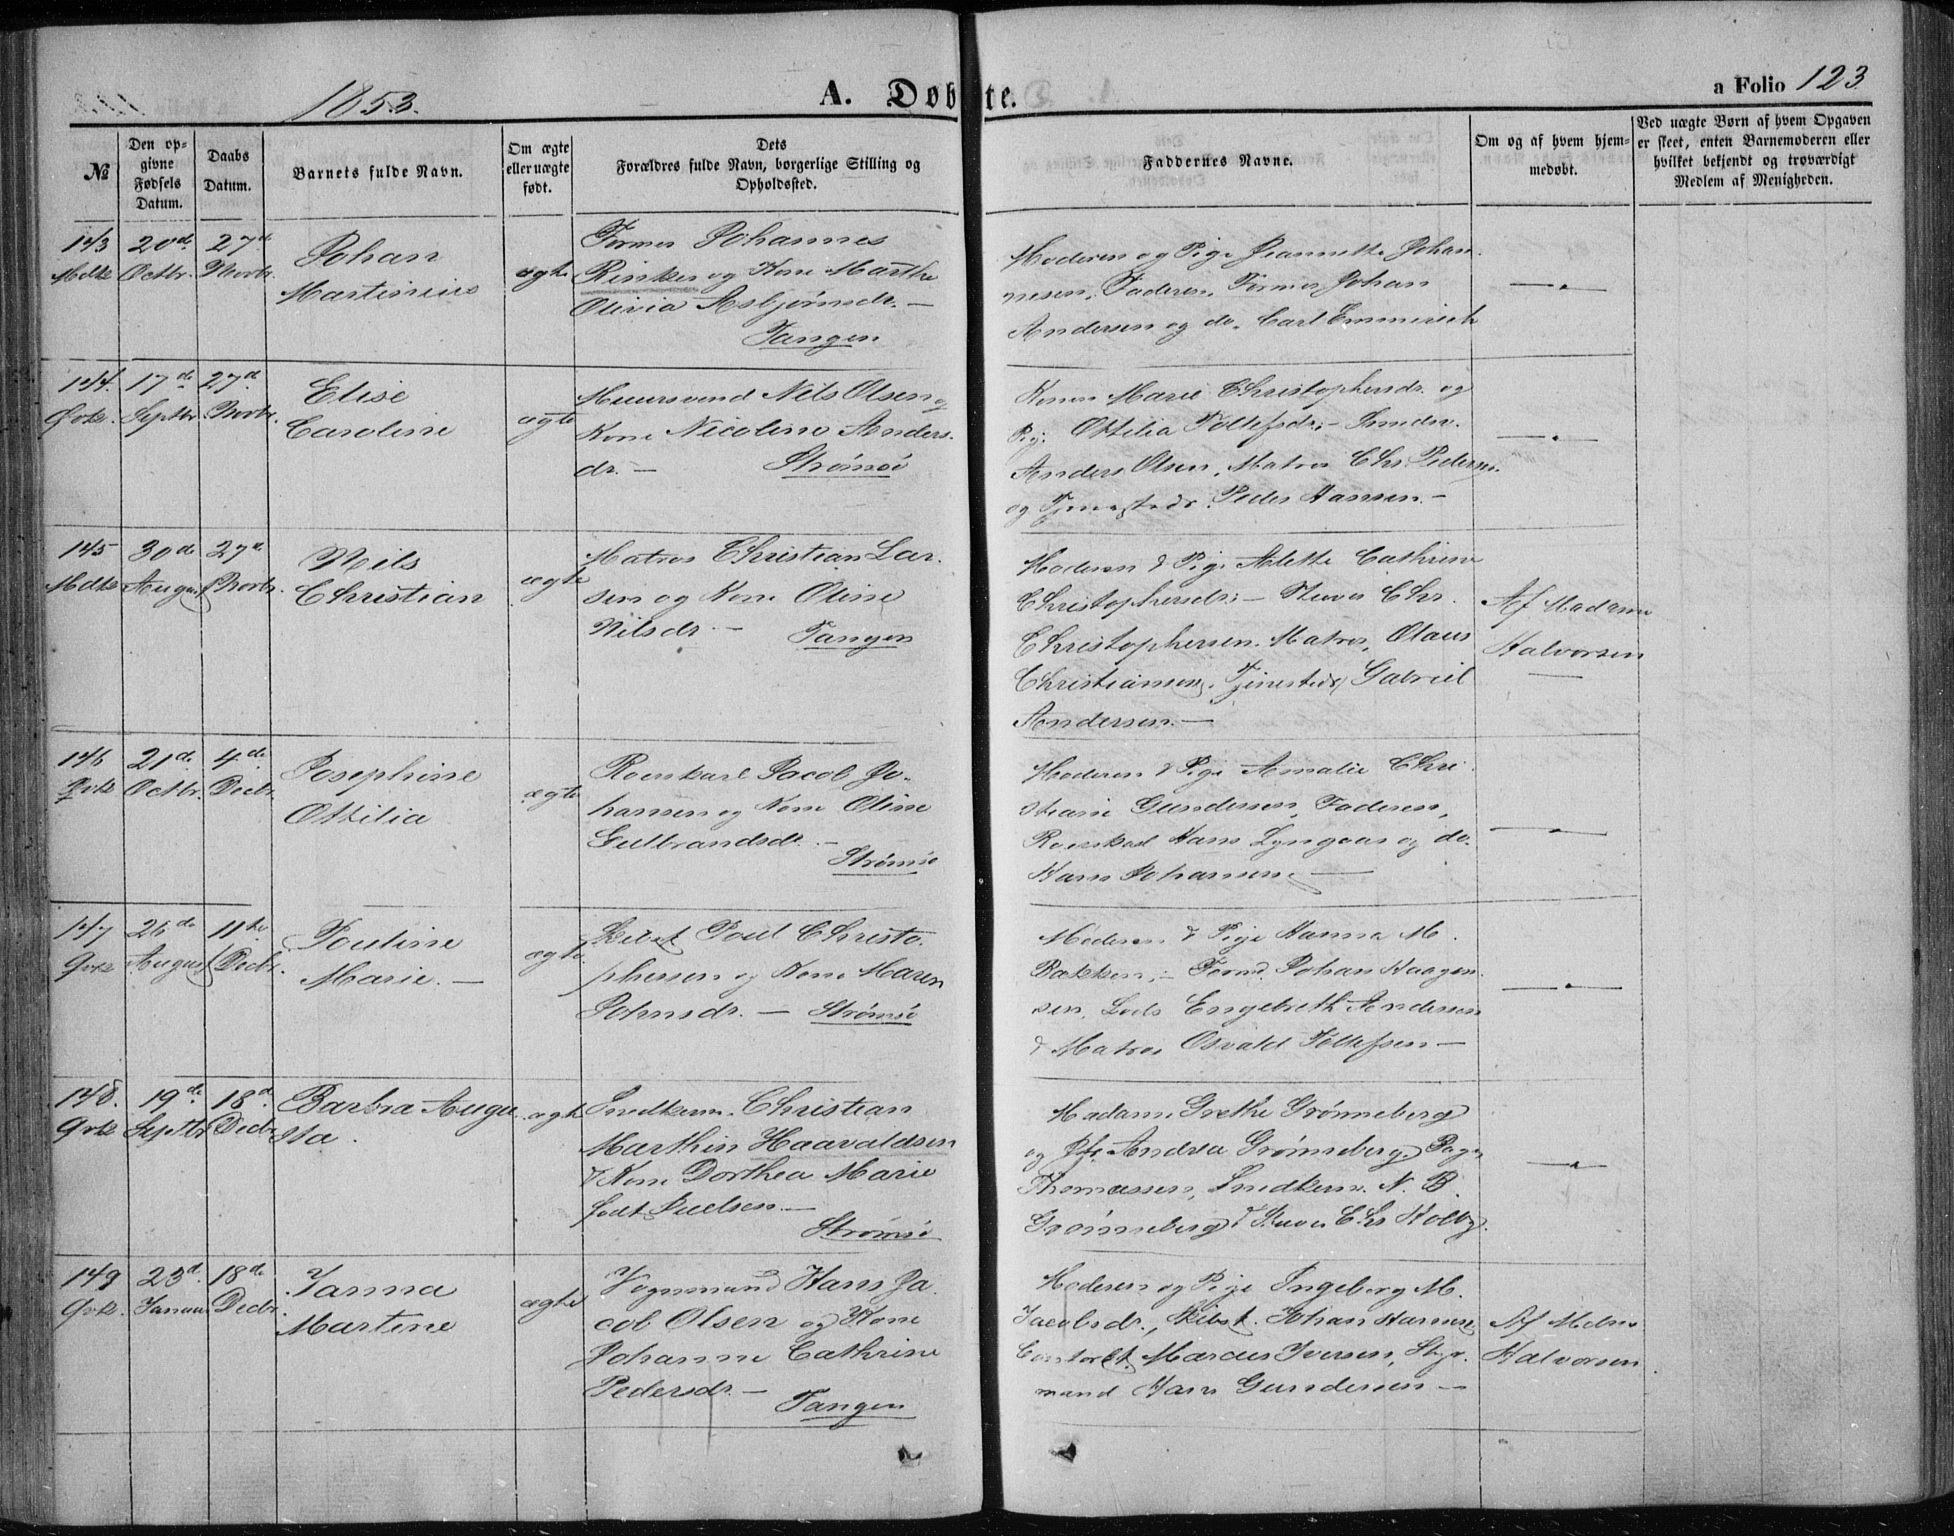 1853.
A. Døbte.
a Folio 123
№
Den opgivne Fødsels Datum.
Daabs Datum.
Barnets fulde Navn.
Om ægte eller uægte født.
Dets
Forældres fulde Navn, borgerlige Stilling og
Opholdssted.
Faddernes Navne.
Om og af hvem hjemmedøbt.
Ved uægte Børn af hvem Opgaven
er skeet, enten Barnemoderen eller
hvilket bekjendt og troværdigt
Medlem af Menigheden.
143 Mdk
20de Octbr.
27de Novbr.
Johan
Martinius
ægte
Former Johannes
Rinker og Kone Marthe
Olivia Asbjørnsdr. —
Tangen
Moderen og Pige Jeannette Johan
nesen, Faderen, Former Johan
Andersen og do. Carl Emmerich
144. Qvk.
17de Septbr.
27de Novbr.
Elise
Caroline
ægte
Muursvend Nils Olsen og
Kone Nicoline Anders.
dr. — Strømsø
Konen Marie Christophersdr. og
Pig. Ottilia Tollefsdr; — Smedm.
Anders Olsen, Matros Chr. Pedersen.
og Tjenestedr. Peder Hansen. —
145 Mdk
30de August
27de Novbr.
Nils
Christian
ægte
Matros Christian Lar.
sen og Kone Oline
Nilsdr. — Tangen
Moderen & Pige Alette Cathrine
Christophersdr; — Stuver Chr.
Christophersen. Matros, Olaus
Christiansen, Tjenestedr, Gabriel
Andersen. —
Af Madame
Halvorsen
146 Qvk
21de Octbr.
4de Decbr.
Josephine
Ottilia
ægte
Roerskarl Jacob Jo.
hansen og Kone Oline
Gulbrandsdr. —
Strømsø
Moderen & Pige Amalie Chri
stiane Gundersen, Faderen,
Roerskarl Hans Lyngaas og do.
Hans Johansen, —
147 Qvk
26de August
11te Decbr.
Pouline
Marie. —
ægte
Skibst Poul Christo.
phersen og Kone Maren
Johnsdr. — Strømsø
Moderen & Pige Hanna M.
Bakken; — Formd. Johan Haagen.
sen, Lods Engebreth Andersen
& Matros Osvald Tollefsen —
148. Qvk
19de Septbr
18de Decbr
Barbra Augu
sta.
ægte
Snedkerm. Christian
Marthin Haavaldsen
& Kone Dorthea Marie
født Nielsen. —
Strømsø
Madam Grethe Grønneberg
og Jfr. Andrea Grønneberg,
Thomassen, Snedkerm. N. B.
Grønneberg & Stuver Chr Holby.
149 Qvk.
23de Januar
18de Decbr.
Janna
Martine
ægte
Vognmand Hans Ja
cob Olsen og Kone
Johanne Cathrine
Pedersdr. —
Tangen
Moderen og Pige Ingeborg M.
Jacobsdr., Skibst. Johan Hansen,
Contorbt. Marcus Iversen, Styr.
mand Hans Gundersen —
Af Mdm
Halvorsen